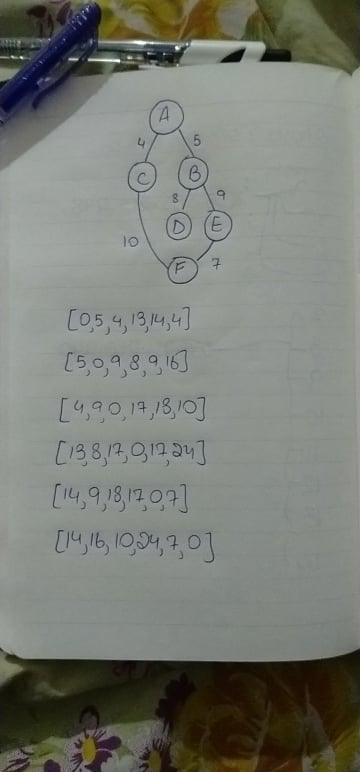 A
4 5
C B
8 9
D E
10 7
F
[0,5,4,13,14,4]
[5,0,9,8,9,16]
[4,9,0,17,18,10]
[13,8,17,0,17,24]
[14,9,18,17,0,7]
[14,16,10,24,7,0]